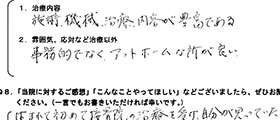 1．治療内容
施術、機械、治療、内容が豊富である
2．雰囲気、応対など治療以外
事務的でなく、アットホームな所が良い。
Q8．「当院に対するご感想」「こんなことやってほしい」などございましたら、ぜひお聞
ください。（一言でもお書きいただければ幸いです。）
生まれて初めて接骨院の治療を受け、自分が思っていた